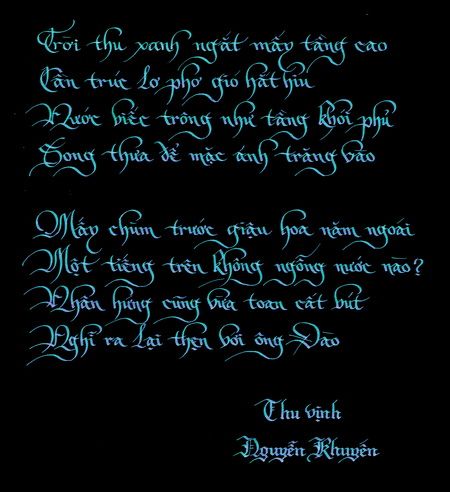 Trời thu xanh ngắt mấy tầng cao
Cần trúc lơ phơ gió hắt hiu
Nước biếc trông như tầng khói phủ
Song thưa để mặc ánh trăng vào
Mấy chùm trước giậu hoa năm ngoái
Một tiếng trên không ngỗng nước nào?
Nhân hứng cũng vừa toan cất bút
Nghĩ ra lại thẹn với ông Đào
Thu vịnh
Nguyễn Khuyến